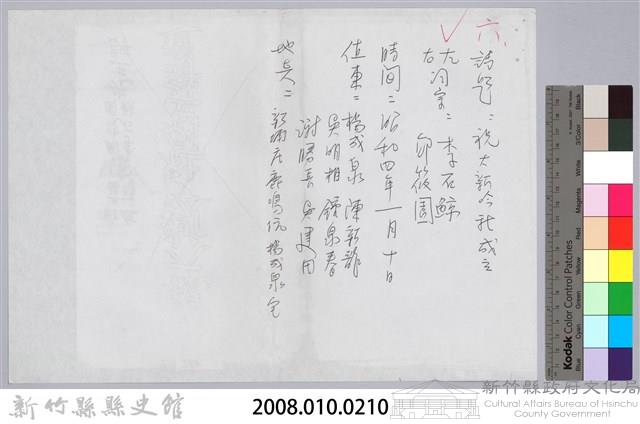 六、
詩題：祝大新吟社成立
左詞宗：李石鯨
右 邱筱園
時間：昭和四年一月十日
值東：楊成泉 陳新龍
吳明相 鍾泉春
謝勝長 吳建田
地點：新埔庄鹿鳴坑楊成泉宅
新竹縣縣史館
2008.010.0210
新竹縣政府文化局
Cultural Affairs Bureau of Hsinchu
County Government
Kodak Color Control Patches
Blue
Cyan
Green
Yellow
Red
Magenta
White
3/Color
Black